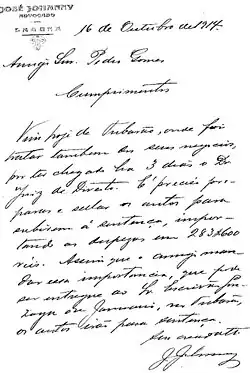 JOSÉ JOHANNY
ADVOGADO
LAGUNA
16 de Outubro de 1914.
Amigo Snr. Pedro Gomes
Cumprimentos
Vim hoje de Tubarão, onde fui
tratar tambem os seus negocios,
por ter chegado ha 3 dias o Dr
Juiz de Direito. E' preciso pre-
parar e sellar os autos para
subirem á sentença, impor-
tando as despezas em 283x600
réis. Assim que o amigo man-
dar essa importancia, que pode
ser entregue ao Sr. Escrivão
de Janeiro, em Tubarão,
os autos irão para sentença.
Seu creado
J. Johanny